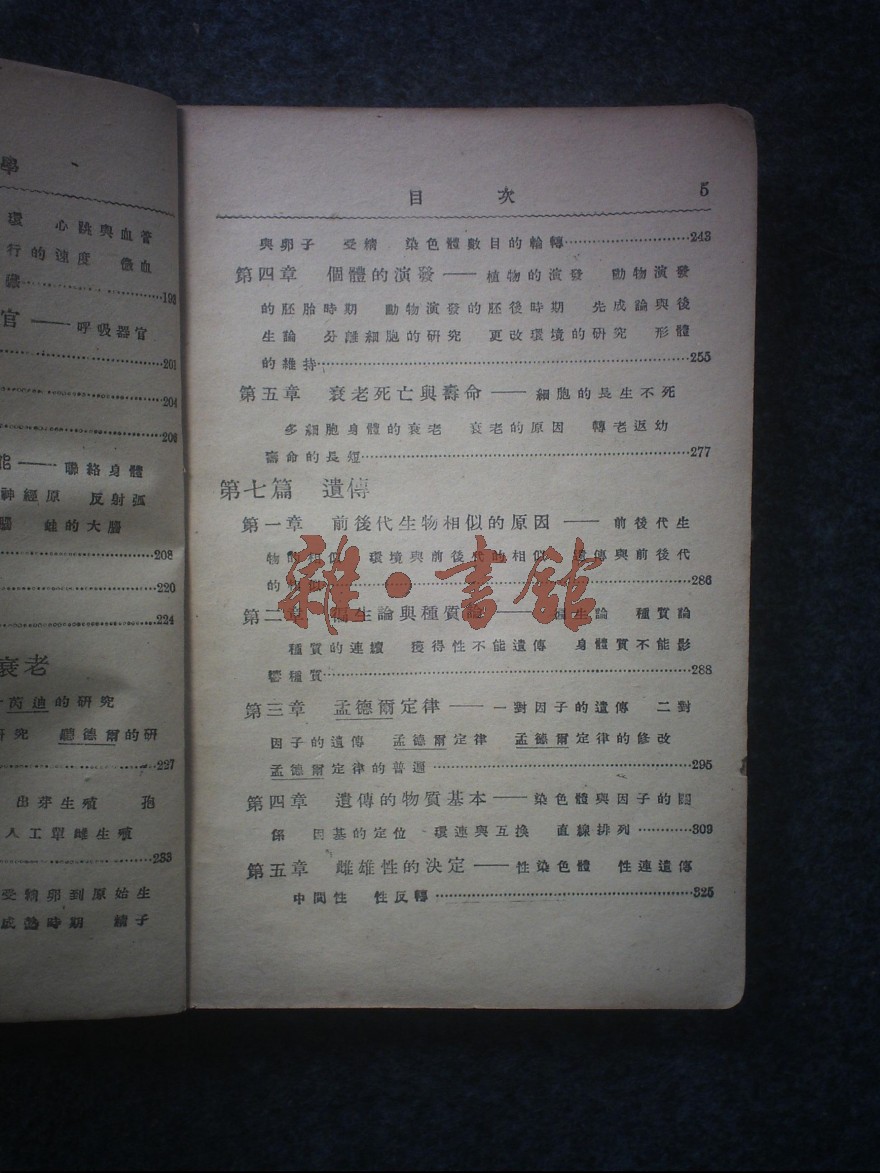 學
環 心跳與血管
行的速度 血
192
官——呼吸器官
201
204
206
能——聯絡身體
神經原 反射弧
腦 蛙的大腦
208
220
224
衰老
芮迪的研究
研究 聽德爾的研
227
出芽生殖 孢
人工單雌生殖
233
受精卵到原始生
成熟時期 精子
目 次 5
與卵子 受精 染色體數目的輪轉 243
第四章 個體的演發——植物的演發 動物演發
的胚胎時期 動物演發的胚後時期 先成論與後
生論 分離細胞的研究 更改環境的研究 形體
的維持 255
第五章 衰老死亡與壽命——細胞的長生不死
多細胞身體的衰老 衰老的原因 轉老返幼
壽命的長短 277
第七篇 遺傳
第一章 前後代生物相似的原因——前後代生
物的相似 環境與前後代的相似 遺傳與前後代
的相似 286
第二章 偶生論與種質論——偶生論 種質論
種質的連續 獲得性不能遺傳 身體質不能影
響種質 288
第三章 孟德爾定律——一對因子的遺傳 二對
因子的遺傳 孟德爾定律 孟德爾定律的修改
孟德爾定律的普遍 295
第四章 遺傳的物質基本——染色體與因子的關
係 因基的定位 環連與互換 直線排列 309
第五章 雌雄性的決定——性染色體 性連遺傳
中間性 性反轉 325
雜·書館